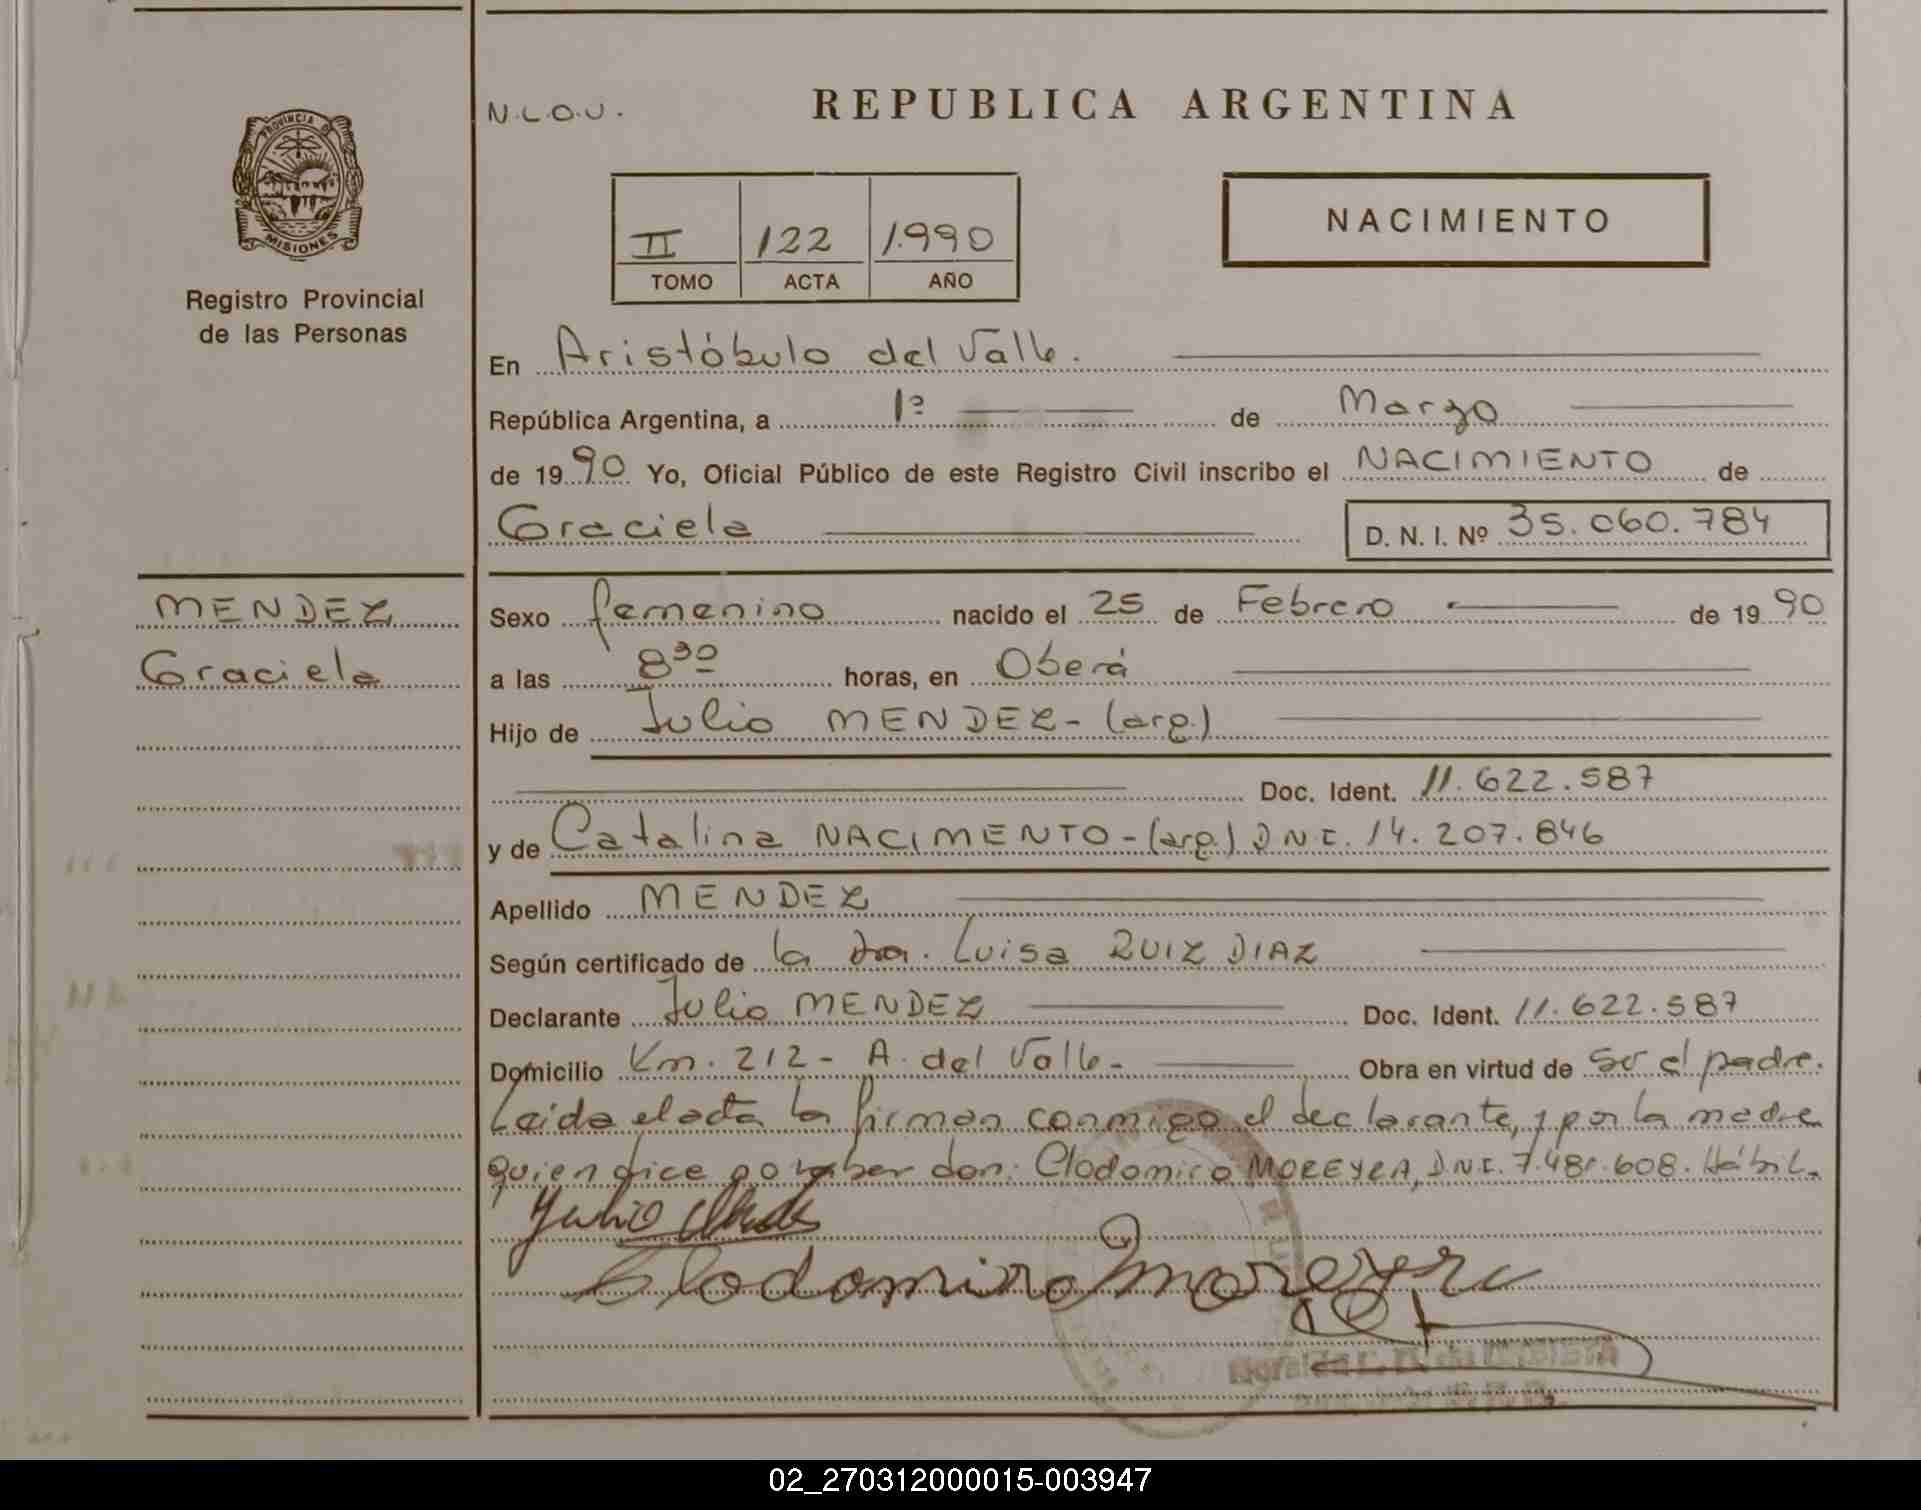 N.L.O.U.
REPUBLICA ARGENTINA
PROVINCIA DE
MISIONES
Registro Provincial
de las Personas
II 122 1.990
TOMO ACTA AÑO
NACIMIENTO
En Aristóbulo del Valle.
República Argentina, a 1º de Marzo
de 1990 Yo, Oficial Público de este Registro Civil inscribo el NACIMIENTO de
Graciela D. N. I. Nº 35.060.784
MENDEZ
Graciela
Sexo femenino nacido el 25 de Febrero de 1990
a las 8³⁰ horas, en Oberá
Hijo de Julio MENDEZ - (arg.)
Doc. Ident. 11.622.587
y de Catalina NACIMENTO - (arg.) D.N.I. 14.207.846
Apellido MENDEZ
Según certificado de la Dra. Luisa RUIZ DIAZ
Declarante Julio MENDEZ Doc. Ident. 11.622.587
Domicilio Km. 212 - A. del Valle - Obra en virtud de ser el padre.
Leida el acta la firman conmigo el declarante, y por la madre
quien dice no saber don: Clodomiro MOREYRA, D.N.I. 7.481.608. Hábil.
Julio Mendez
Clodomiro Moreyra
02_270312000015-003947